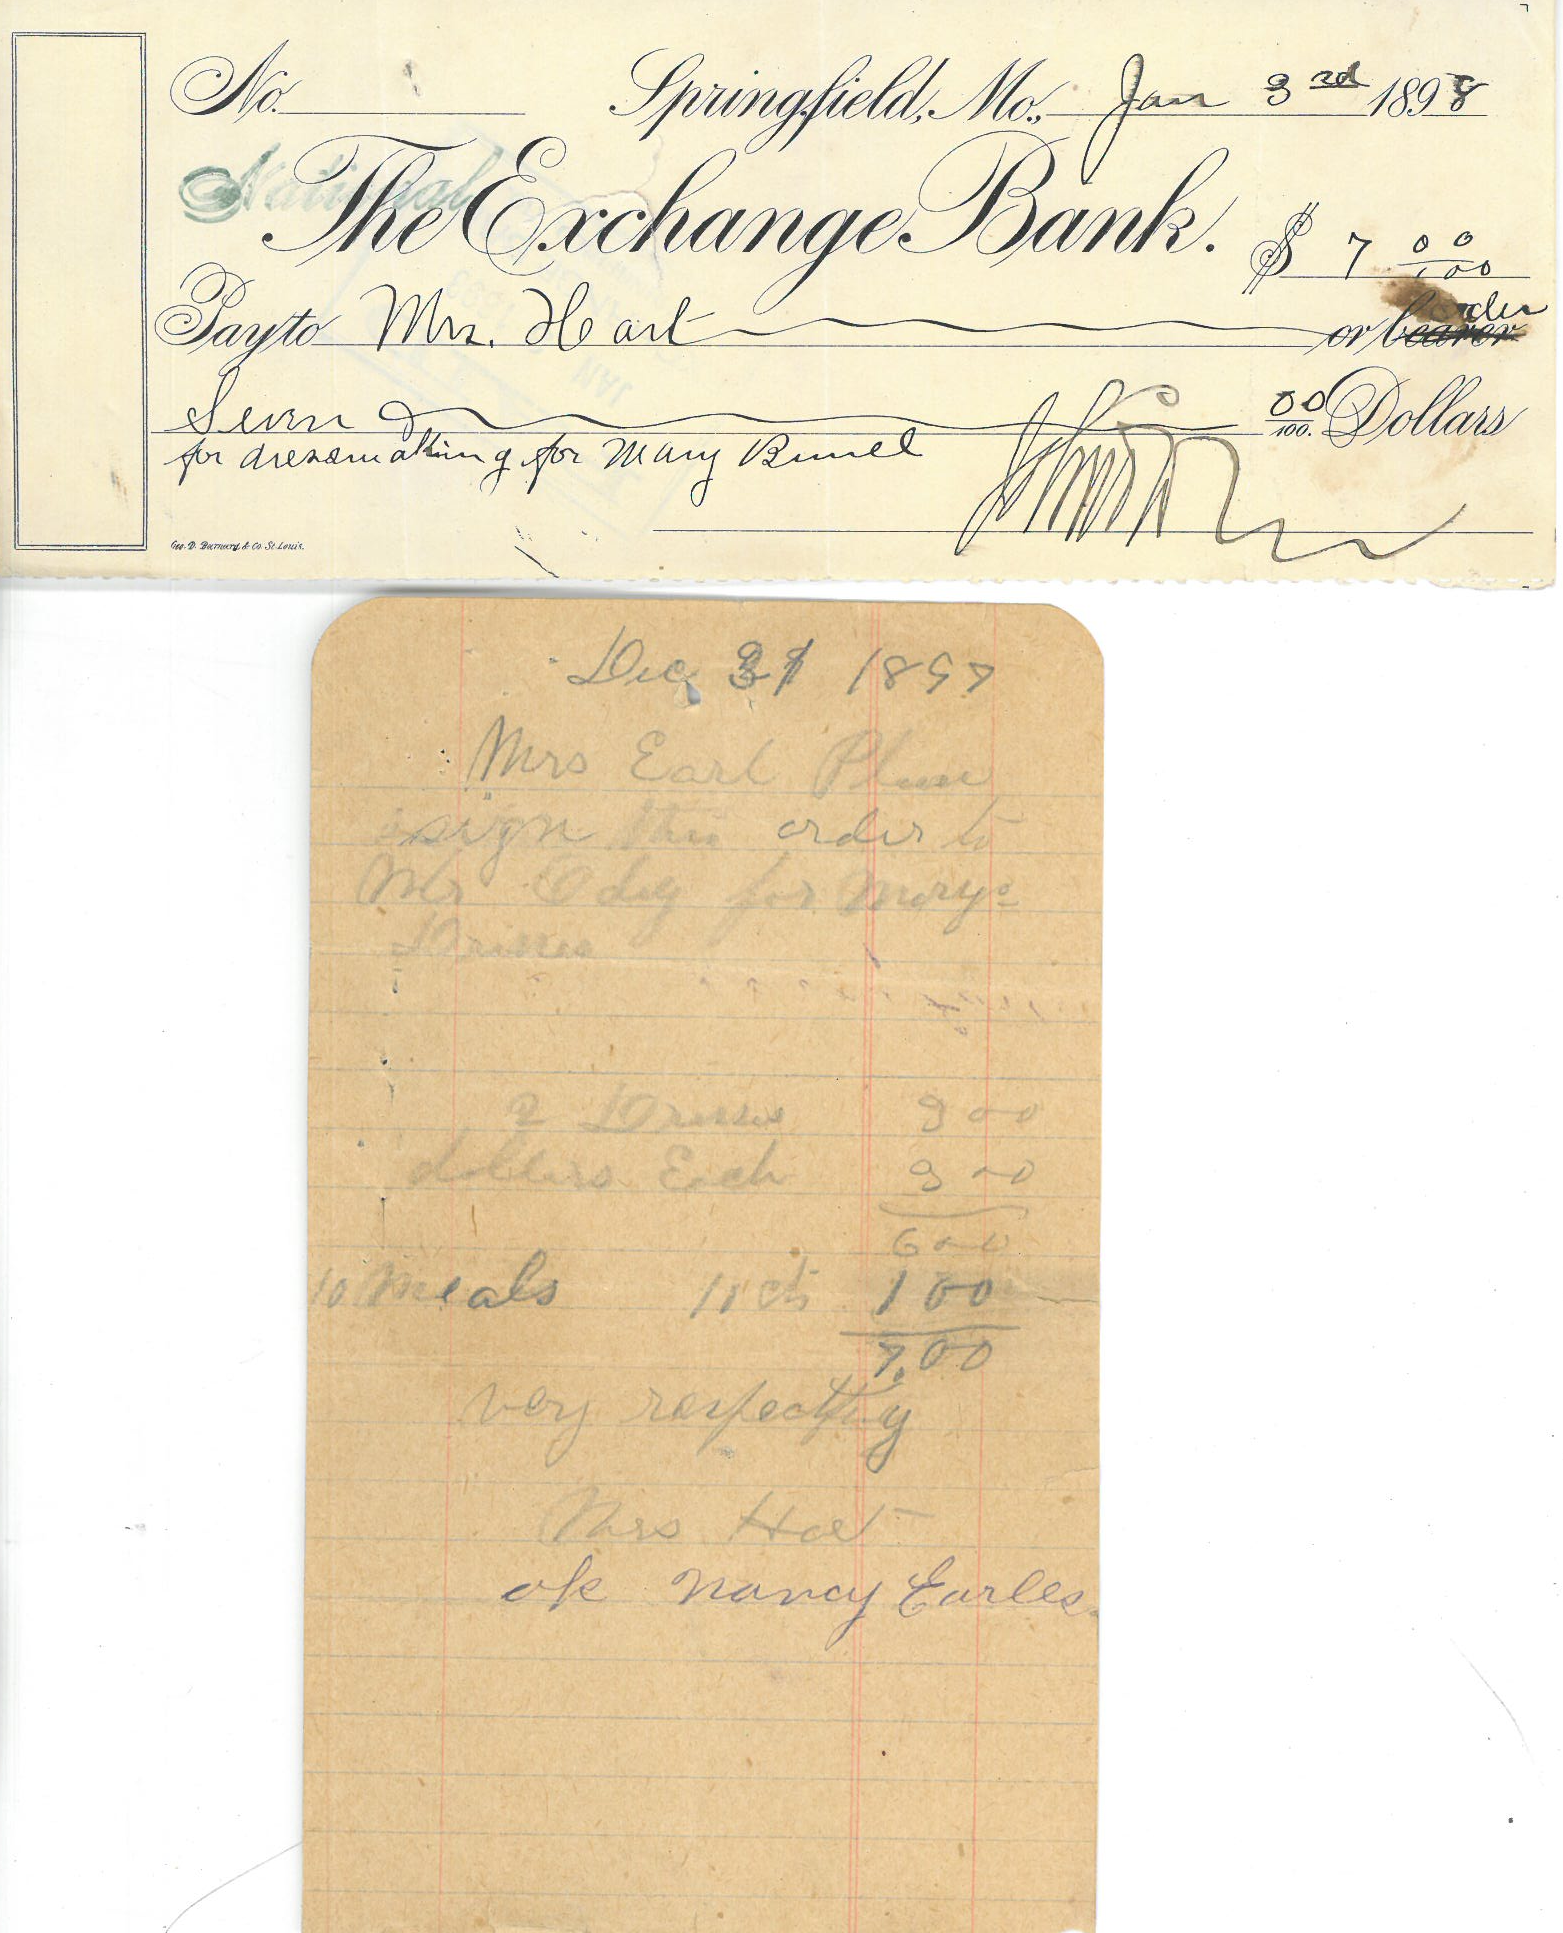 No.
Springfield, Mo., Jan 3rd 1898
National
The Exchange Bank.
$ 7 00/100
Pay to Mrs. Hart or bearer order
Seven 00/100 Dollars
for dressmaking for Mary
Geo. D. Barnard & Co. St. Louis.
Dec 31 1897
Mrs Earl
sign this order to
Mr Odey for Marys
Dresses
2 Dresses 3 00
dollers Each 3 00
6 00
10 Meals 10 cts 1 00
7.00
very respectfuly
Mrs Hart
ok Nancy Earles